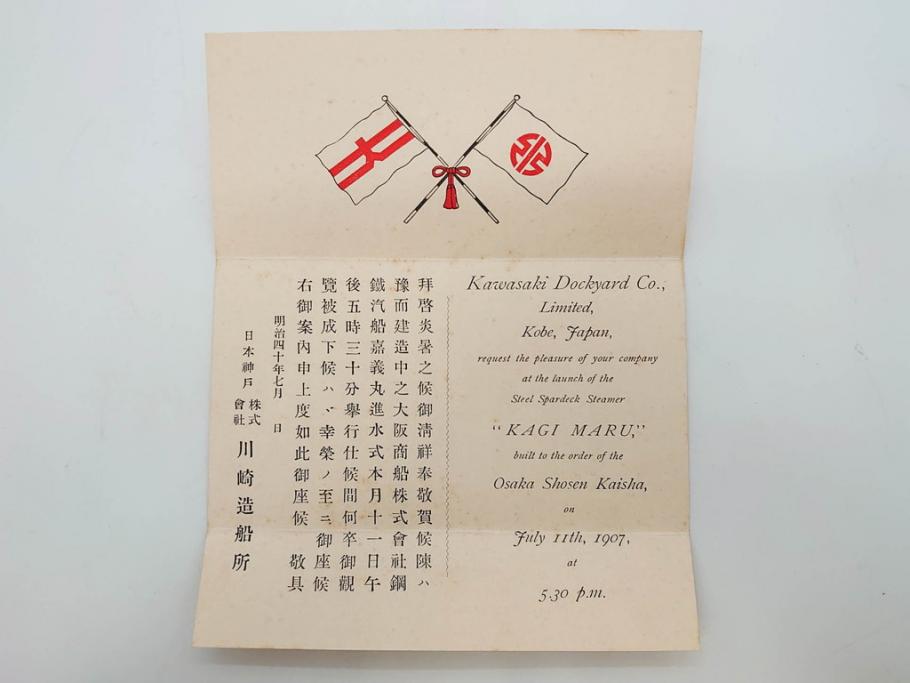 Kawasaki Dockyard Co.,
Limited,
Kobe, Japan,
request the pleasure of your company
at the launch of the
Steel Spardeck Steamer
“KAGI MARU,”
built to the order of the
Osaka Shosen Kaisha,
on
July 11th, 1907,
at
5.30 p.m.
拜啓炎暑之候御淸祥奉敬賀候陳ハ
豫而建造中之大阪商船株式會社鋼
鐵汽船嘉義丸進水式本月十一日午
後五時三十分擧行仕候間何卒御觀
覽被成下候ハヾ幸榮ノ至ニ御座候
右御案內申上度如此御座候 敬具
明治四十年七月 日
日本神戶 株式會社 川崎造船所